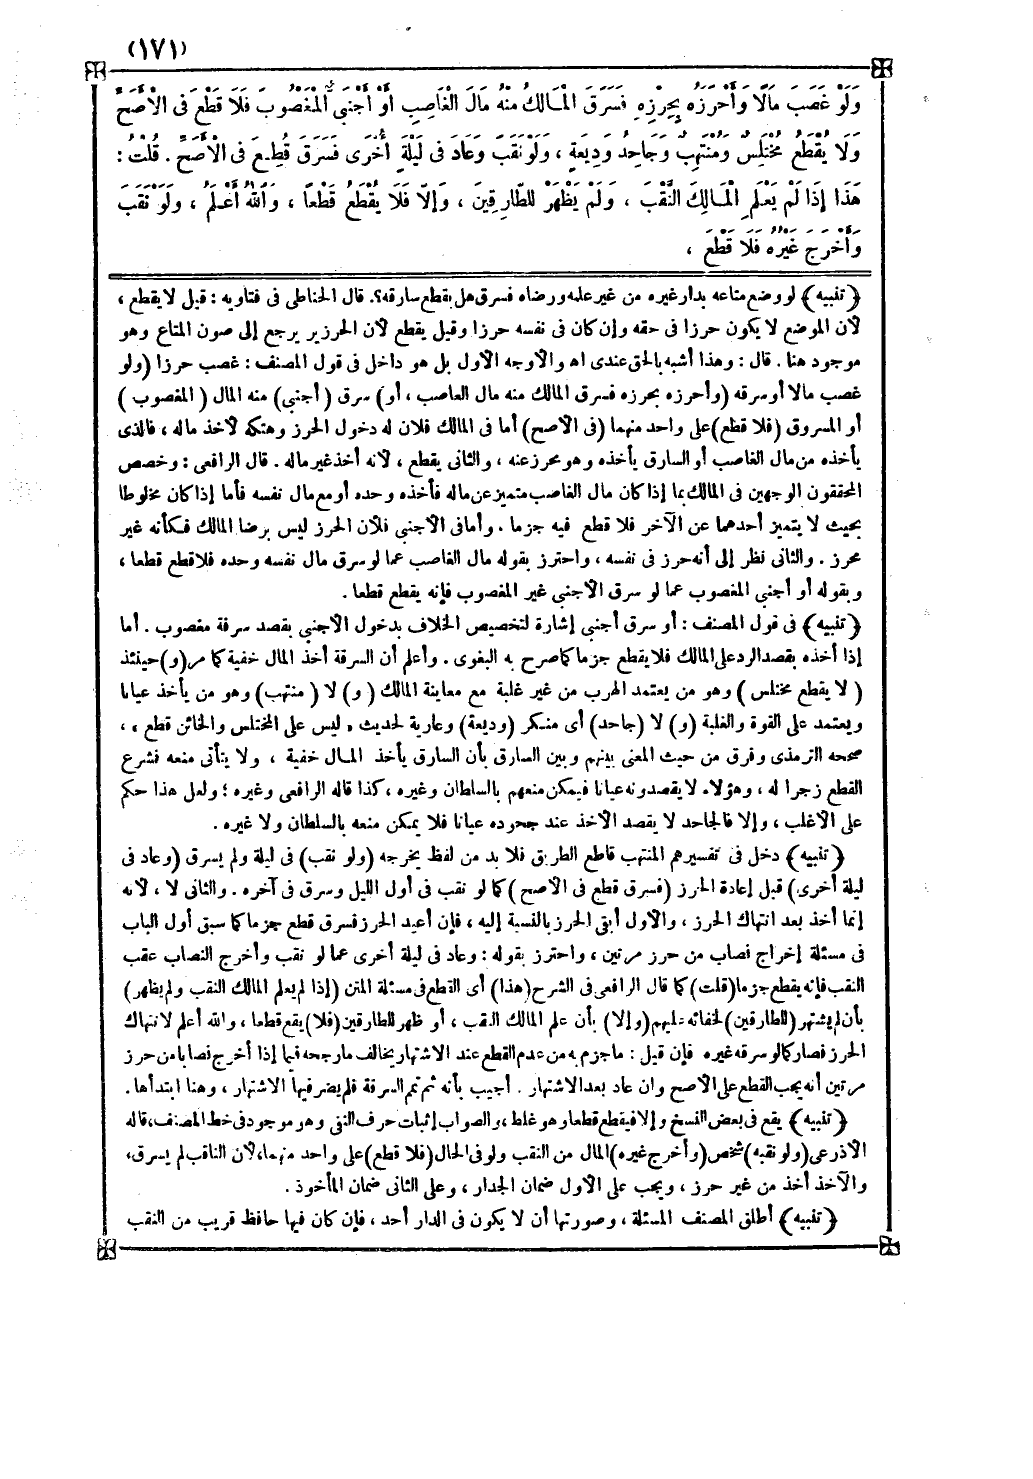 (١٧١)
وَلَوْ غَصَبَ مَالًا وَأَحْرَزَهُ بِحِرْزِهِ فَسَرَقَ الْمَالِكُ مِنْهُ مَالَ الْغَاصِبِ أَوْ أَجْنَبِيٌّ الْمَغْصُوبَ فَلَا قَطْعَ فِى الْأَصَحِّ
وَلَا يُقْطَعُ مُخْتَلِسٌ وَمُنْتَهِبٌ وَجَاحِدُ وَدِيعَةٍ ، وَلَوْ نَقَبَ وَعَادَ فِى لَيْلَةٍ أُخْرَى فَسَرَقَ قُطِعَ فِى الْأَصَحِّ . قُلْتُ :
هَذَا إِذَا لَمْ يَعْلَمِ الْمَالِكُ النَّقْبَ ، وَلَمْ يَظْهَرْ لِلطَّارِقِينَ ، وَإِلَّا فَلَا يُقْطَعُ قَطْعاً ، وَاللّٰهُ أَعْلَمُ ، وَلَوْ نَقَبَ
وَأَخْرَجَ غَيْرُهُ فَلَا قَطْعَ ،
﴿ تنبيه ﴾ لو وضع متاعه بدار غيره من غير علمه ورضاه فسرق هل يقطع سارقه؟. قال الحناطى فى فتاويه : قيل لا يقطع ،
لأن الموضع لا يكون حرزا فى حقه وإن كان فى نفسه حرزا وقيل يقطع لأن الحرز ير يرجع إلى صون المتاع وهو
موجود هنا . قال : وهذا أشبه بالحق عندى اه والأوجه الأول بل هو داخل فى قول المصنف : غصب حرزا (ولو
غصب مالا أو سرقه (وأحرزه بحرزه فسرق المالك منه مال الغاصب ، أو) سرق (أجنبى) منه المال ( المغصوب )
أو المسروق (فلا قطع) على واحد منهما (فى الأصح) أما فى المالك فلأن له دخول الحرز وهتكه لأخذ ماله ، فالذى
يأخذه من مال الغاصب أو السارق يأخذه وهو محرز عنه ، والثانى يقطع ، لأنه أخذ غير ماله . قال الرافعى : وخصص
المحققون الوجهين فى المالك بما إذا كان مال الغاصب متميز عن ماله فأخذه وحده أو مع مال نفسه فأما إذا كان مخلوطا
بحيث لا يتميز أحدهما عن الآخر فلا قطع فيه جزما . وأما فى الأجنبى فلأن الحرز ليس برضا المالك فكأنه غير
محرز . والثانى نظر إلى أنه حرز فى نفسه ، واحترز بقوله مال الغاصب عما لو سرق مال نفسه وحده فلا قطع قطعا ،
وبقوله أو أجنبى المغصوب عما لو سرق الأجنبى غير المغصوب فإنه يقطع قطعا .
﴿ تنبيه ﴾ فى قول المصنف : أو سرق أجنبى إشارة لتخصيص الخلاف بدخول الأجنبى بقصد سرقة مغصوب . أما
إذا أخذه بقصد الرد على المالك فلا يقطع جزما كما صرح به البغوى . وأعلم أن السرقة أخذ المال خفية كما مر (و) حينئذ
( لا يقطع مختلس ) وهو من يعتمد الهرب من غير غلبة مع معاينة المالك ( و ) لا ( منتهب) وهو من يأخذ عيانا
ويعتمد على القوة والغلبة (و) لا (جاحد) أى منكر (وديعة) وعارية لحديث « ليس على المختلس والخائن قطع » ،
صححه الترمذى وفرق من حيث المعنى بينهم وبين السارق بأن السارق يأخذ المال خفية ، ولا يتأتى منعه فشرع
القطع زجرا له ، وهؤلاء لا يقصدونه عيانا فيمكن منعهم بالسلطان وغيره ، كذا قاله الرافعى وغيره ؛ ولعل هذا حكم
على الأغلب ، وإلا فالجاحد لا يقصد الأخذ عند جحوده عيانا فلا يمكن منعه بالسلطان ولا غيره .
﴿ تنبيه ﴾ دخل فى تفسيرهم المنتهب قاطع الطريق فلا بد من لفظ يخرجه (ولو نقب) فى ليلة ولم يسرق (وعاد فى
ليلة أخرى) قبل إعادة الحرز (فسرق قطع فى الأصح ) كما لو نقب فى أول الليل وسرق فى آخره . والثانى لا ، لأنه
إنما أخذ بعد انتهاك الحرز ، والأول أبقى الحرز بالنسبة إليه ، فإن أعيد الحرز فسرق قطع جزما كما سبق أول الباب
فى مسئلة إخراج نصاب من حرز مرتين ، واحترز بقوله : وعاد فى ليلة أخرى عما لو نقب وأخرج النصاب عقب
النقب فإنه يقطع جزما (قلت) كما قال الرافعى فى الشرح (هذا) أى القطع فى مسئلة المتن (إذا لم يعلم المالك النقب ولم يظهر)
بأن لم يشتهر (للطارقين) لخفائه عليهم (وإلا) بأن علم المالك النقب ، أو ظهر للطارقين (فلا) يقع قطعا ، والله أعلم لانتهاك
الحرز فصار كما لو سرقه غيره فإن قيل : ماجزم به من عدم القطع عند الاشتهار يخالف مارجحه فيما إذا أخرج نصابا من حرز
مرتين أنه يجب القطع على الأصح وان عاد بعد الاشتهار . أجيب بأنه ثم تم السرقة فلم يضر فيها الاشتهار ، وهنا ابتدأها .
﴿ تنبيه ﴾ يقع فى بعض النسخ وإلا فيقطع قطعا وهو غلط ، والصواب إثبات حرف النفى وهو موجود فى خط المصنف، قاله
الأذرعى (ولو نقبه) شخص (وأخرج غيره) المال من النقب ولو فى الحال (فلا قطع) على واحد منهما، لأن الناقب لم يسرق،
والآخذ أخذ من غير حرز ، ويجب على الأول ضمان الجدار ، وعلى الثانى ضمان المأخوذ .
﴿ تنبيه ﴾ أطلق المصنف المسئلة ، وصورتها أن لا يكون فى الدار أحد ، فإن كان فيها حافظ قريب من النقب